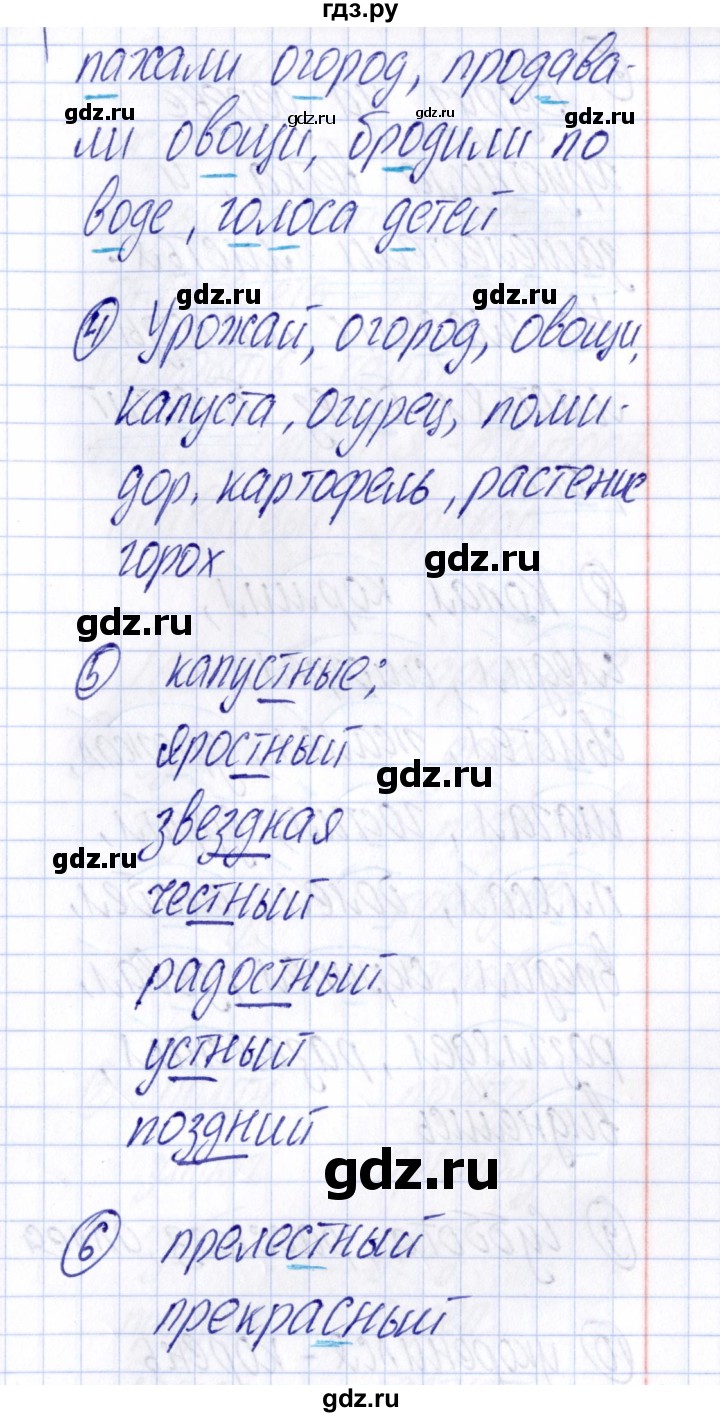 гдз.ру
пахали огород, продава-
gdz.ru gdz.ru gdz.ru gdz.ru
ли овощи, бродили по
воде, голоса детей
gdz.ru gdz.ru
4 Урожай, огород, овощи,
капуста, огурец, поми-
дор, картофель, растение
горох
gdz.ru
gdz.ru
5 капустные;
яростный
gdz.ru
звездная
gdz.ru
честный
радостный
устный
поздний
gdz.ru
6 прелестный
прекрасный
gdz.ru